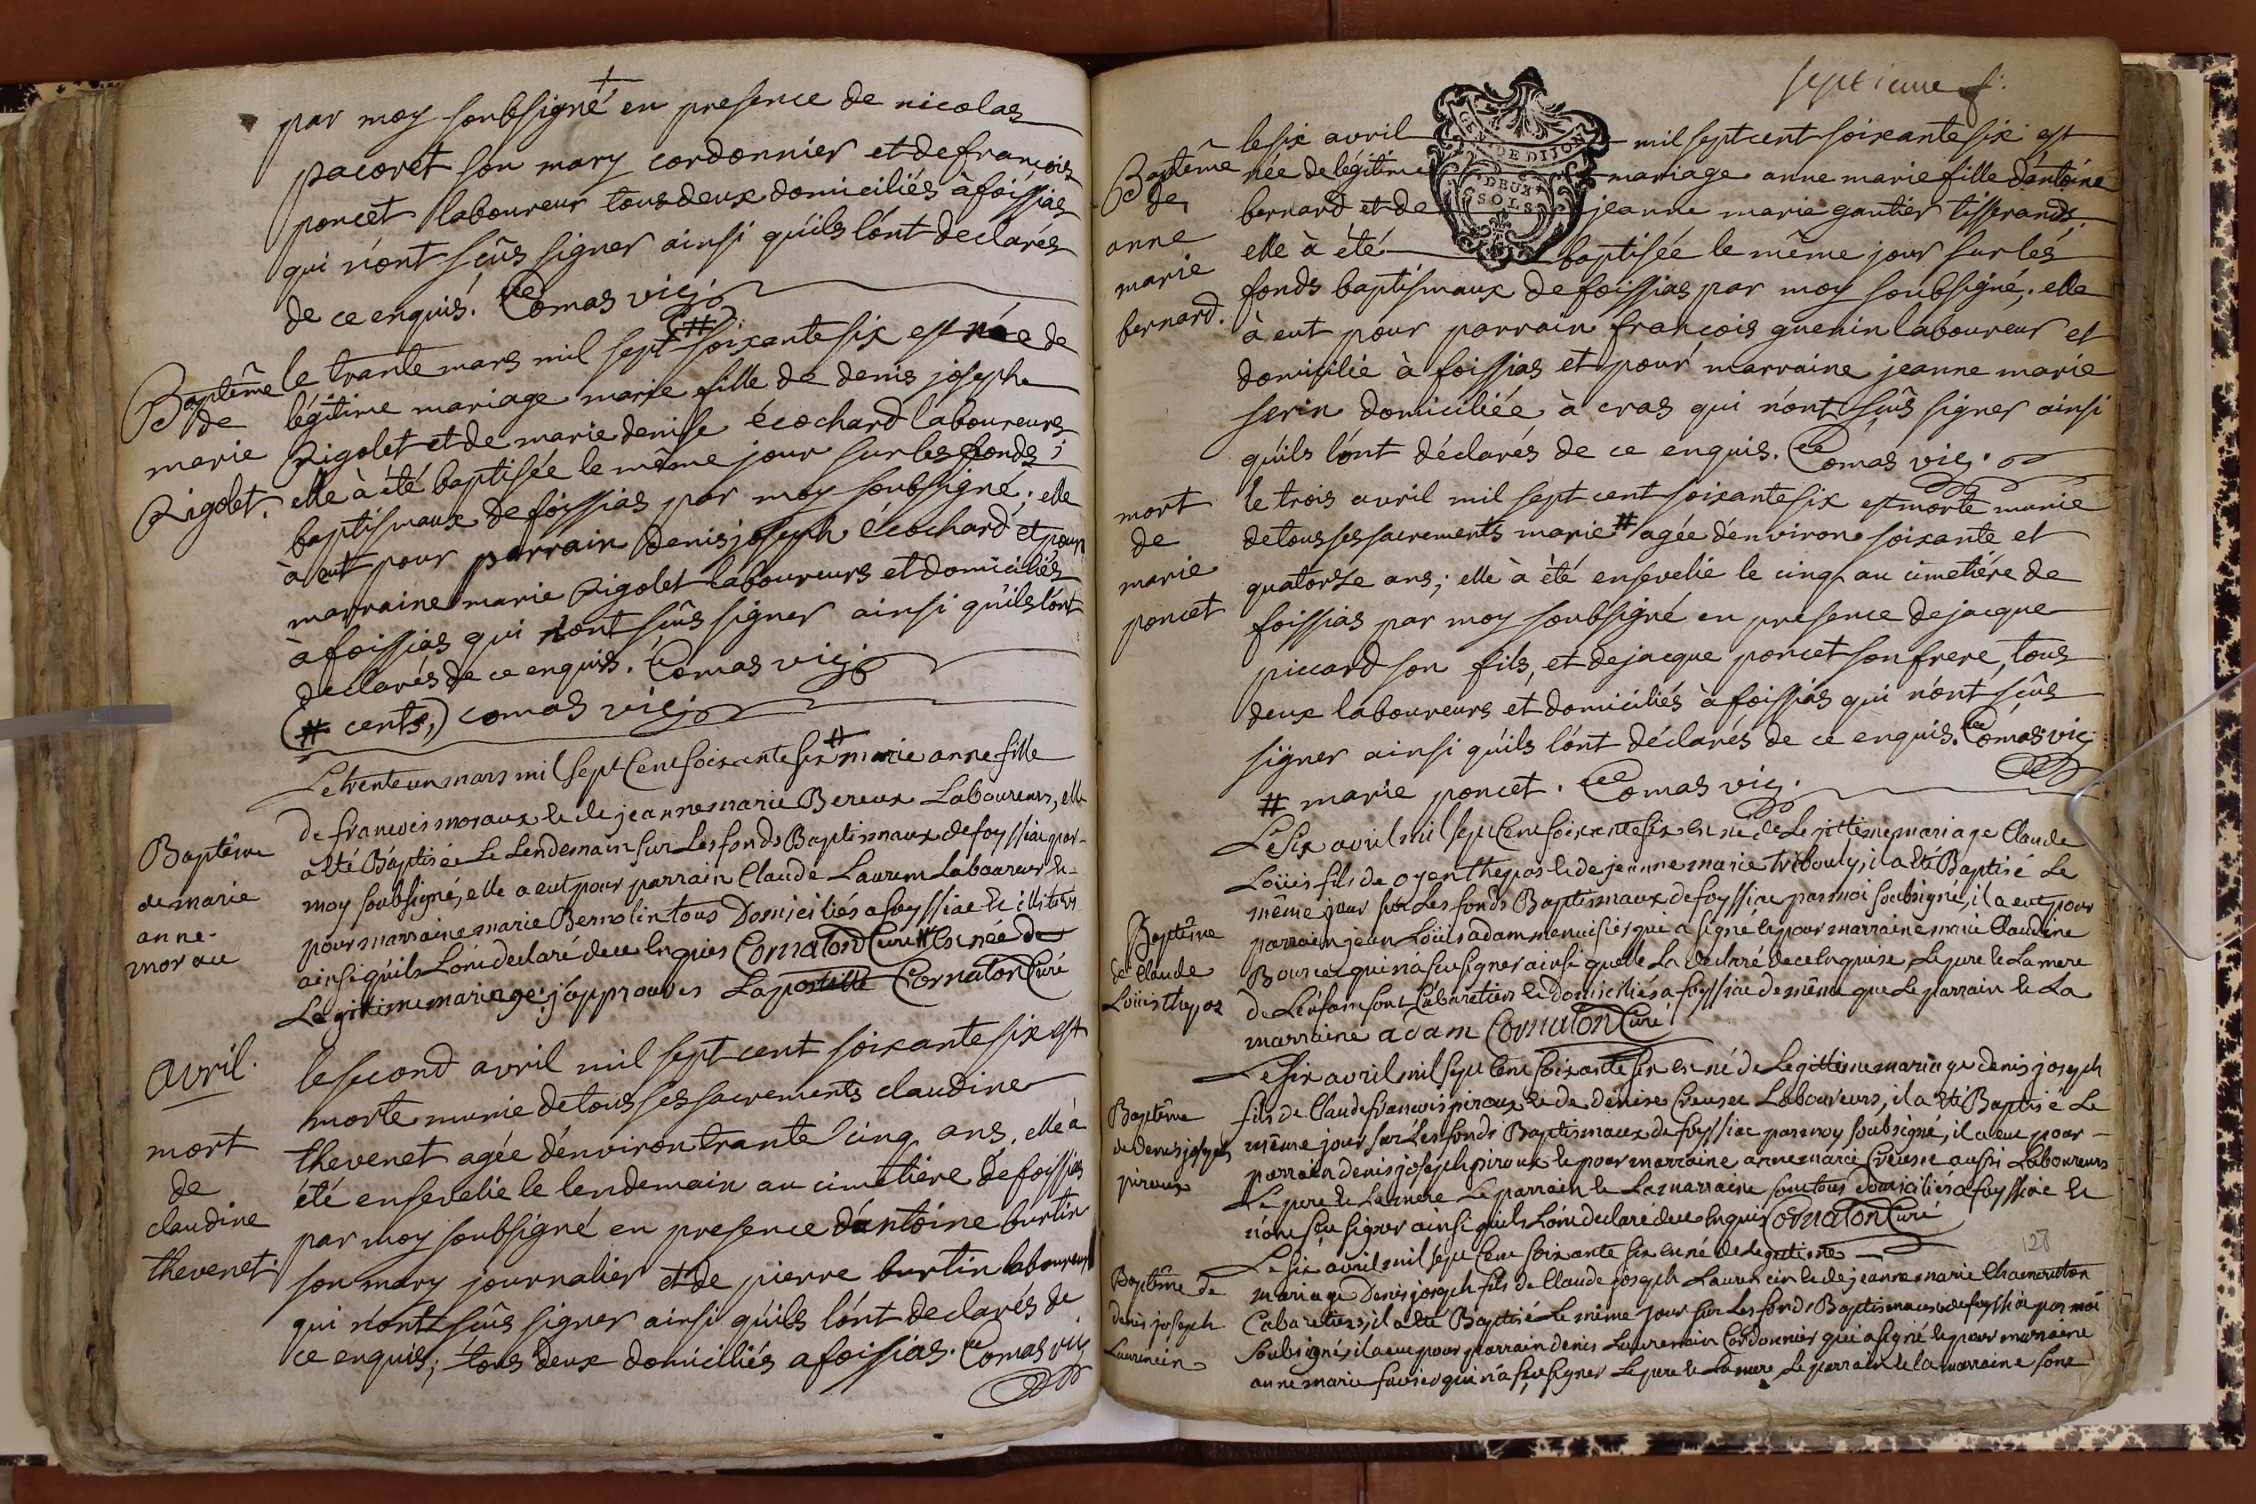 par moy soubsigné en presence de nicolas
pacoret son mary cordonnier et de françois
poncet laboureur tous deux domiciliés à foissias
qui n'ont sçûs signer ainsi qu'ils l'ont declarés
de ce enquis. Comas vic.
Baptême
de
marie
Rigolet.
le trante mars mil sept (#) soixante six est née de
légitime mariage marie fille de denis joseph
Rigolet et de marie denise écochard laboureurs
elle à été baptisée le même jour sur les fonds
baptismaux de foissias par moy soubsigné; elle
à eut pour parrain denis joseph écochard et pour
marraine marie Rigolet laboureurs et domiciliés
à foissias qui n'ont sçûs signer ainsi qu'ils l'ont
declarés de ce enquis. Comas vic.
(# cents,) comas vic.
Baptême
de marie
anne
morau
Le trente un mars mil sept Cent soixante six # marie anne fille
de francois moraux et de jeanne marie Bereux Laboureurs, elle
a été Baptisée Le Lendemain sur Les fonds Baptismaux de foyssiac par
moy soubsigné, elle a eut pour parrain Claude Laurent Laboureur et
pour marraine marie Bernolin tous Domiciliés a foyssiac et illiterés
ainsi qu'ils L'ont declaré de ce Enquis Cornaton Curé # Est née de
Legitime mariage j'approuve Lapostille Cornaton Curé
avril.
mort
de
claudine
thevenet.
le second avril mil sept cent soixante six est
morte munie de tous ses sacrements claudine
thevenet agée d'environ trante cinq ans, elle à
été ensevelie le lendemain au cimetière de foissias
par moy soubsigné en presence d'antoine burtin
son mary journalier et de pierre burtin laboureur
qui n'ont sçûs signer ainsi qu'ils l'ont declarés de
ce enquis; tous deux domiciliés a foissias. Comas vic.
septieme f.
GEN. DE DIJON
DEUX
SOLS
Baptême
de
anne
marie
bernard.
le six avril mil sept cent soixante six est
née de légitime mariage anne marie fille d'antoine
bernard et de jeanne marie gautier tisserands
elle à été baptisée le même jour sur les
fonds baptismaux de foissias par moy soubsigné. elle
à eut pour parrain françois guenin laboureur et
domicilié à foissias et pour marraine jeanne marie
serin domiciliée à cras qui n'ont sçûs signer ainsi
qu'ils l'ont déclarés de ce enquis. Comas vic.
mort
de
marie
poncet
le trois avril mil sept cent soixante six est morte munie
de tous ses sacrements marie # agée d'environ soixante et
quatorse ans; elle à été ensevelie le cinq au cimetière de
foissias par moy soubsigné en presence de jacque
piccard son fils, et de jacque poncet son frere, tous
deux laboureurs et domiciliés à foissias qui n'ont sçûs
signer ainsi qu'ils l'ont déclarés de ce enquis. Comas vic.
# marie poncet. Comas vic.
Baptême
de Claude
Loüis thepos
Le Six avril mil sept Cent soixante six est né de Legittime mariage Claude
Loüis fils de oyen thepos et de jeanne marie tribouly, il a été Baptisé Le
même jour sur Les fonds Baptismaux de foyssiac par moi soubsigné, il a eut pour
parrain jean Loüis adam menuisier qui a signé et pour marraine marie Claudine
Bource qui n'a sçu signer ainsi quelle La declaré de ce Enquise, Le pere et La mere
de L'enfant sont Cabaretiers et Domiciliés a foyssiac de même que Le parrain et La
marraine adam Cornaton Curé
Baptême
de denis joseph
piroux
Le Six avril mil sept Cent soixante six est né de Legittime mariage denis joseph
fils de Claude francois piroux et de denise Creuse Laboureurs, il a été Baptisé Le
même jour sur Les fonds Baptismaux de foyssiac par moy soubsigné, il a eut pour
parrain denis joseph piroux et pour marraine anne marie Creuse aussi Laboureurs
Le pere et La mere Le parrain et La marraine sont tous domiciliés a foyssiac et
n'ont sçu signer ainsi qu'ils L'ont declaré de ce Enquis Cornaton Curé
128
Baptême de
denis joseph
Laurencin
Le six avril mil sept Cent soixante six est né de Legittime
mariage Denis joseph fils de Claude joseph Laurencin et de jeanne marie
Cabaretiers, il a été Baptisé Le même jour sur Les fonds Baptismaux de foyssiac par moi
soubsigné, il a eut pour parrain denis Laurencin Cordonnier qui a signé et pour marraine
anne marie qui n'a sçu signer Le pere et La mere Le parrain et la marraine sont